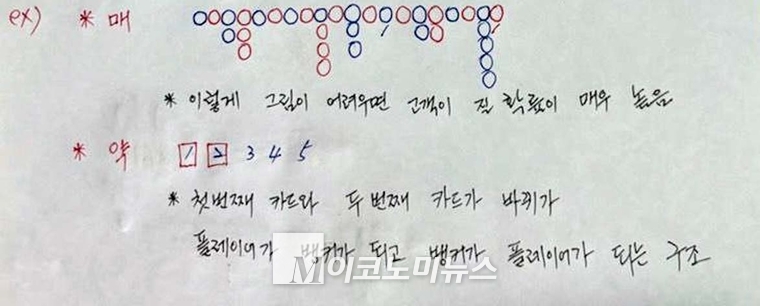 ex) * 매
* 이렇게 그림이 어려우면 고객이 질 확률이 매우 높음
* 약 1 2 3 4 5
* 첫번째 카드와 두번째 카드가 바뀌가
플레이어가 뱅커가 되고 뱅커가 플레이어가 되는 구조
M이코노미뉴스